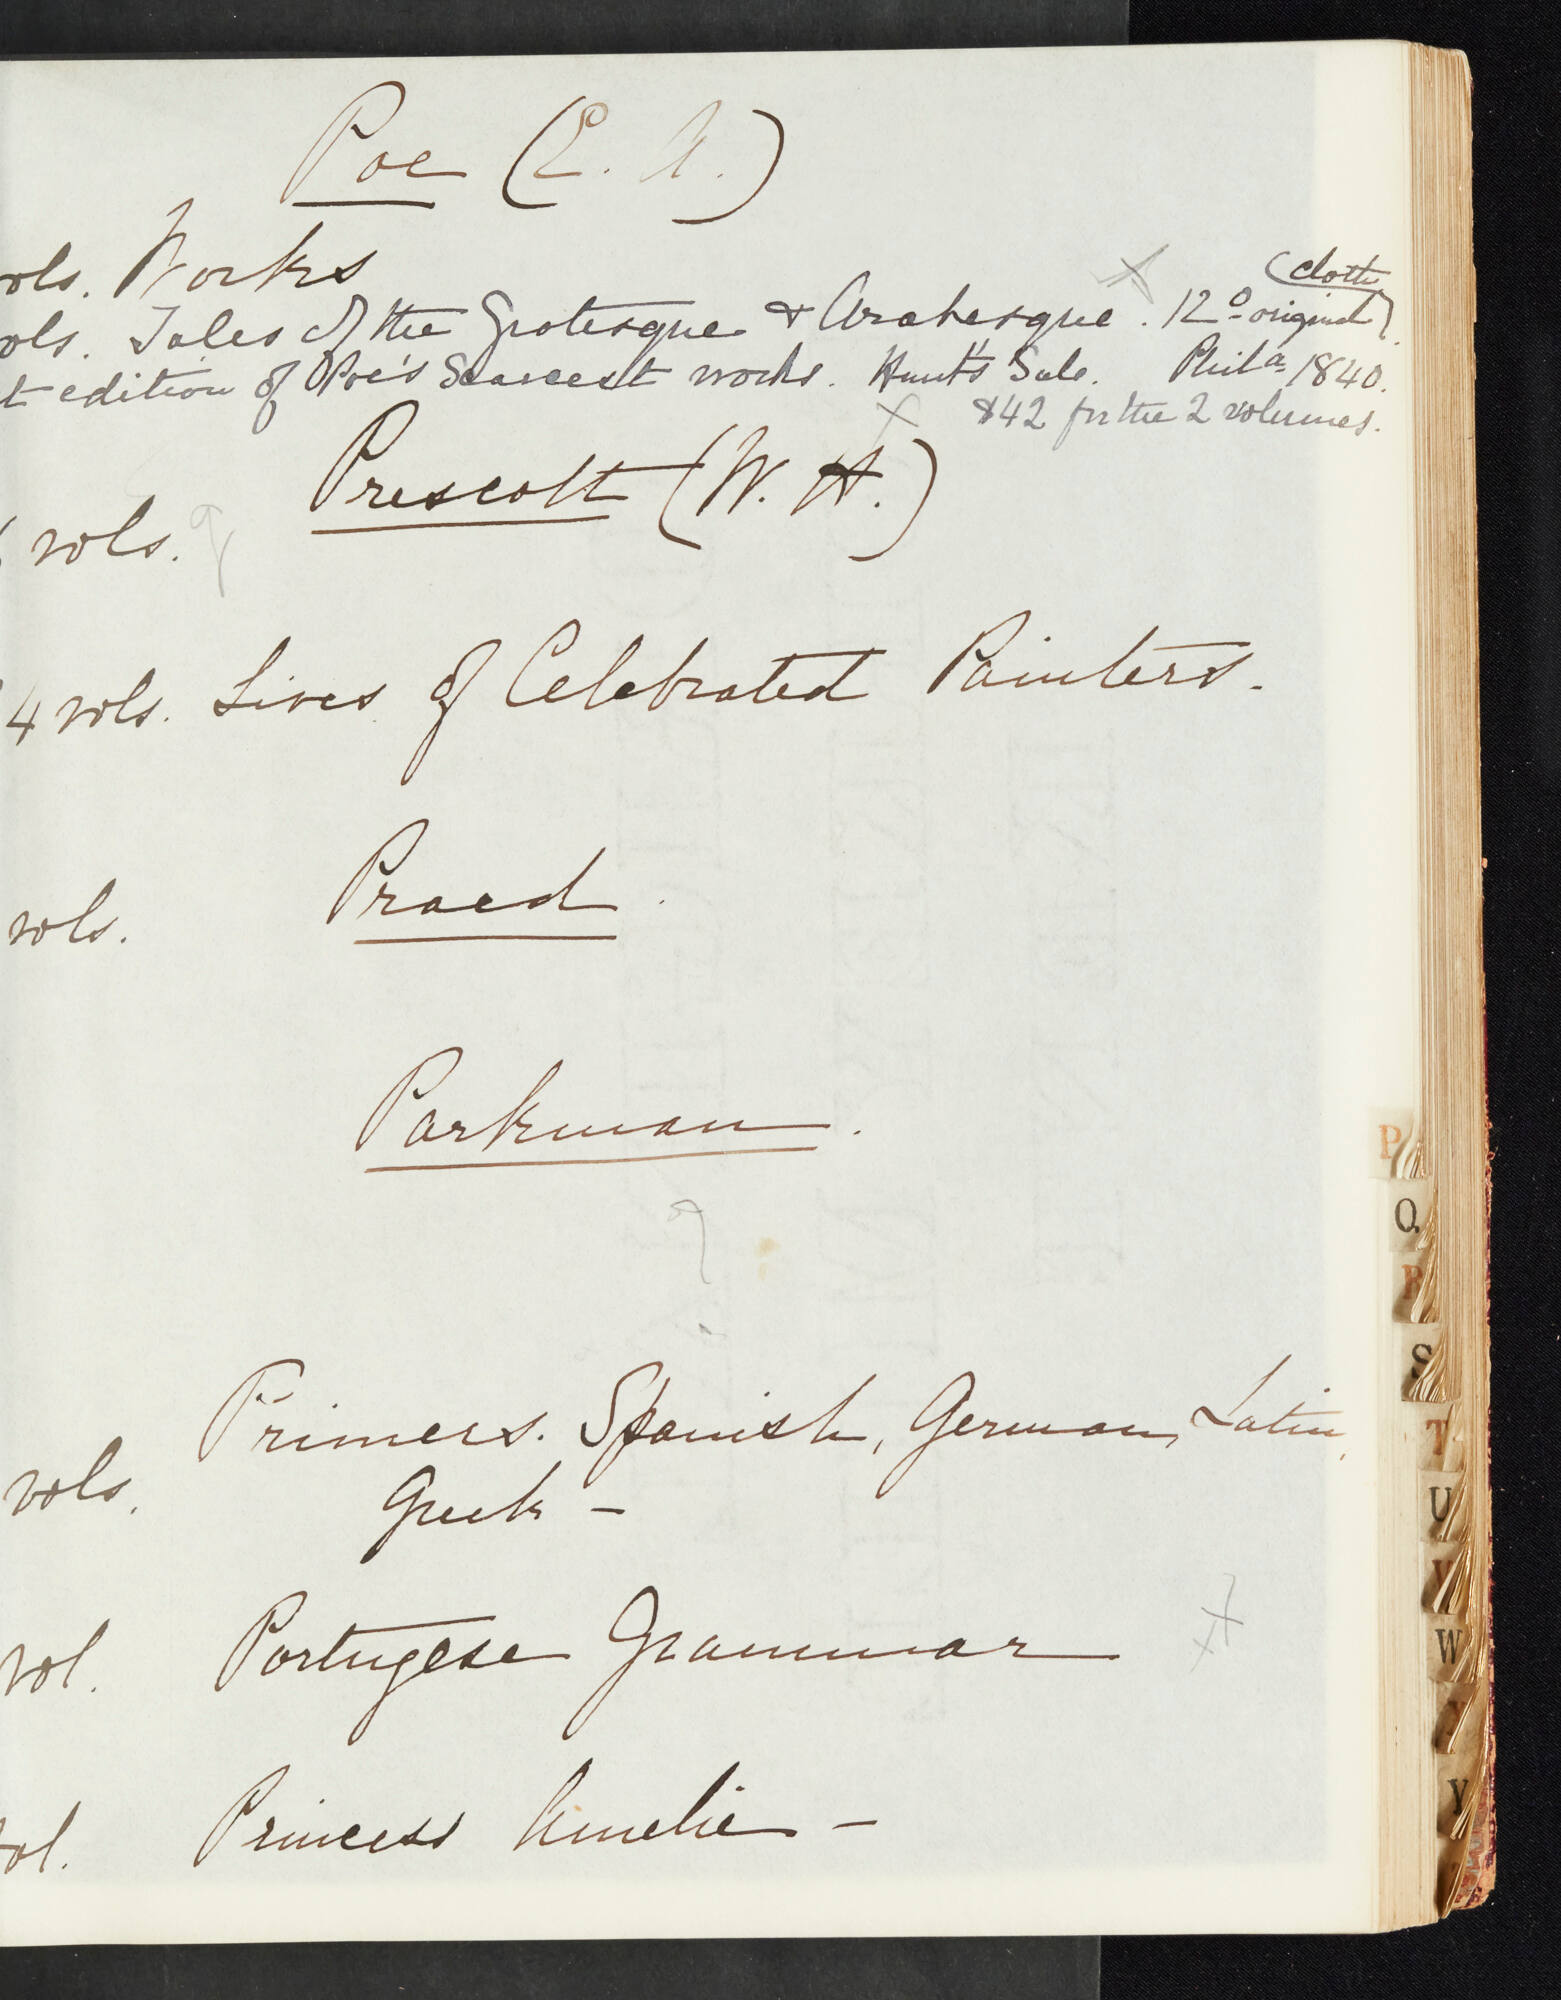 Poe (E. A.)
vols. Works
(cloth
vols. Tales of the Grotesque & Arabesque. 12º original)
t edition of Poe's Scarcest works. Hunt's Sale. Phila 1840.
$42 for the 2 volumes.
Prescott (W. H.)
vols.
4 vols. Lives of Celebrated Painters.
Praed.
vols.
Parkman.
Primers. Spanish, German, Latin,
vols.
Greek –
vol. Portugese Grammar
vol. Princess Amelie –
P
Q
R
S
T
U
V
W
X
Y